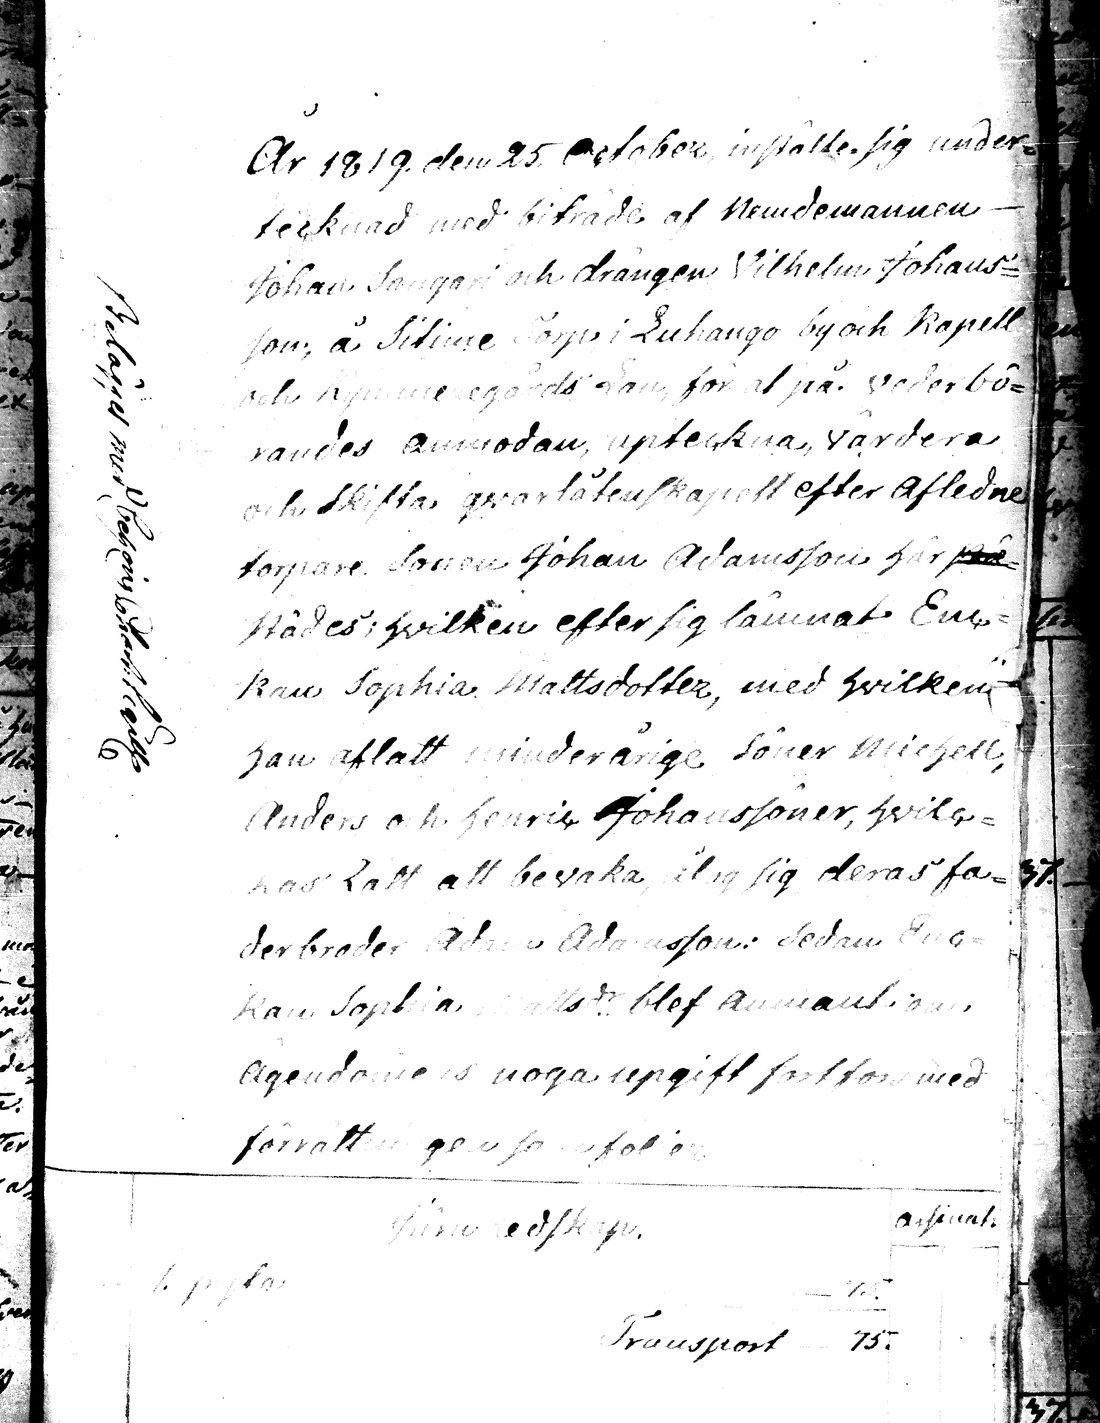 År 1819. den 25. October, instälte sig under=
tecknad med biträde af Nemdemannen —
Johan Sangari och drängen Vilhelm Johans=
son, å Sitime Torp i Luhango by och Kapell
och Kymmenegårds Län, för at på vederbö=
randes anmodan, upteckna, värdera
och skifta qvarlåtenskapett efter Afledne
torpare Sonen Johan Adamsson här
städes; hvilken efter sig lämnat Enc=
kan Sophia Mattsdotter, med hvilken
han aflatt minderårige Söner Michell,
Anders och Henric Johanssöner, hvilc=
kas Rätt att bevaka, älog sig deras fa=
derbroder Adam Adamsson: Sedan Enc=
kan Sophia Mattsdr blef anmant om
Ägendomens noga upgift fortfors med
förrättningen som följer
Järn redskap.
1. pysta 75.
Transport 75.
Belägges med